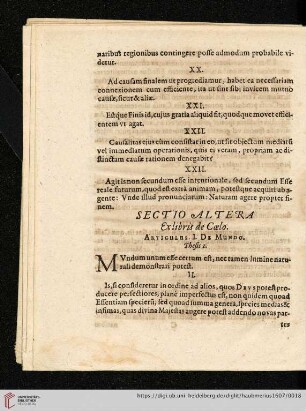 naribus regionibus contingere posse admodum probabile vi-
detur.
XX.
Ad causam finalem ut progrediamur, habet ea necessariam
connexionem cum efficiente, ita ut sint sibi invicem mutuo
causæ, sicut & aliæ.
XXI.
Estque Finis id, cujus gratia aliquid fit, quodque movet effici-
entem ut agat.
XXII.
Causalitas ejus cum consistat in eo, ut sit objectum mediati
vel immediatum operationis, quis ei veram, propriam ac di-
stinctam causæ rationem denegabit?
XXII.
Agit is non secundum esse intentionale, sed secundum Esse
reale futurum, quod est extra animam, potestque acquiri ab a-
gente: Unde illud pronunciarunt: Naturam agere propter fi-
nem.
SECTIO ALTERA
Ex libris de Cœlo.
ARTICULUS I. DE MUNDO.
Thesis 1.
MUndum unum esse certum est, nec tamen lumine natu-
rali demonstrari potest.
II.
Is, si consideretur in ordine ad alios, quos DEVS potest pro-
ducere perfectiores, plane imperfectus est, non quidem quoad
Essentiam specierū, sed quoad summa genera, species medias &
infimas, quas divina Majestas augere potest addendo novas par-
tes
https://digi.ub.uni-heidelberg.de/diglit/hauhmerius1607/0018
UNIVERSITÄTS-
BIBLIOTHEK
HEIDELBERG